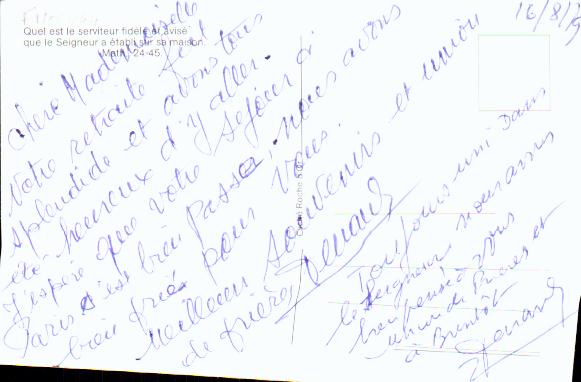 16/8/79
Quel est le serviteur fidèle et avisé
que le Seigneur a établi sur sa maison.
Math. 24-45.
Chère Mademoiselle
Votre retraite fut
splendide et avons tous
été heureux d'y aller.
J'espère que votre séjour à
Paris s'est bien passé, nous avons
bien prié pour vous.
Meilleurs souvenirs et union
de prières
Toujours uni dans
le Seigneur nous avons
bien pensé à vous
union de Prières et
à Bientôt